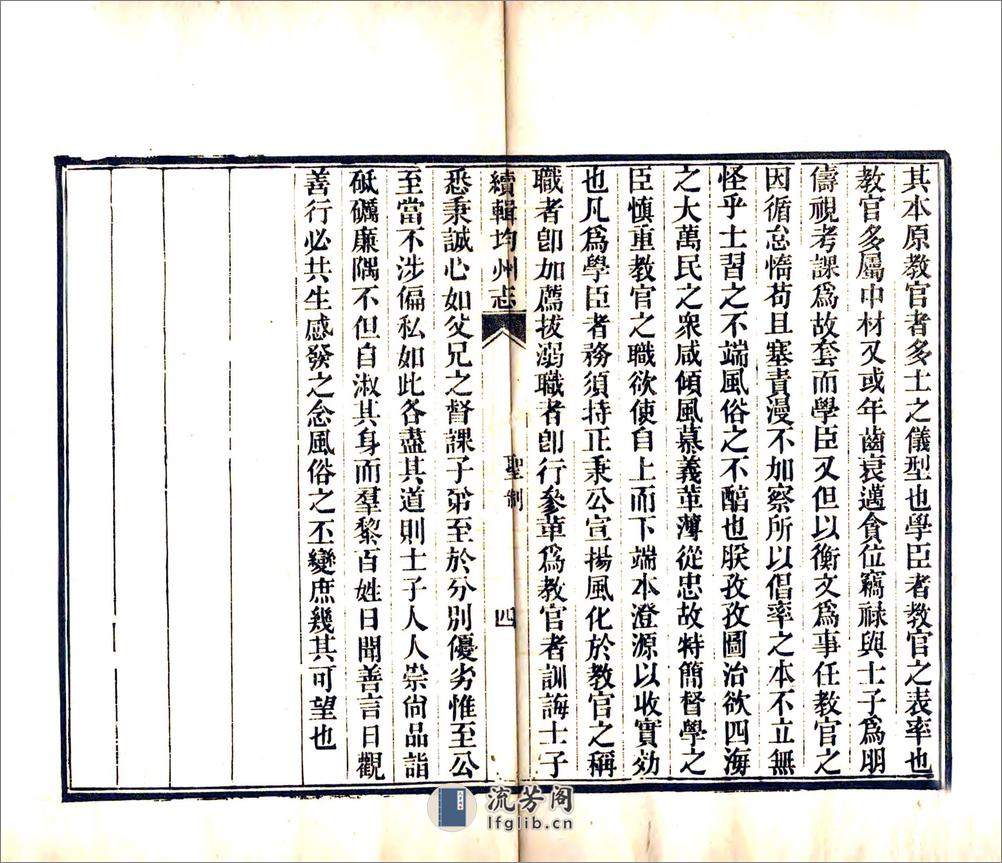 其本原教官者多士之儀型也學臣者教官之表率也
教官多屬中材又或年齒衰邁貪位竊祿與士子爲朋
儔視考課爲故套而學臣又但以衡文爲事任教官之
因循怠惰苟且塞責漫不加察所以倡率之本不立無
怪乎士習之不端風俗之不醕也朕孜孜圖治欲四海
之大萬民之衆咸傾風慕義革薄從忠故特簡督學之
臣慎重教官之職欲使自上而下端本澄源以收實効
也凡爲學臣者務須持正秉公宣揚風化於教官之稱
職者卽加薦拔溺職者卽行參革爲教官者訓誨士子
續輯均州志
聖制
四
悉秉誠心如父兄之督課子弟至於分別優劣惟至公
至當不涉偏私如此各盡其道則士子人人崇尙品詣
砥礪廉隅不但自淑其身而羣黎百姓日聞善言日觀
善行必共生感發之念風俗之丕變庶幾其可望也
流芳阁
lfglib.cn